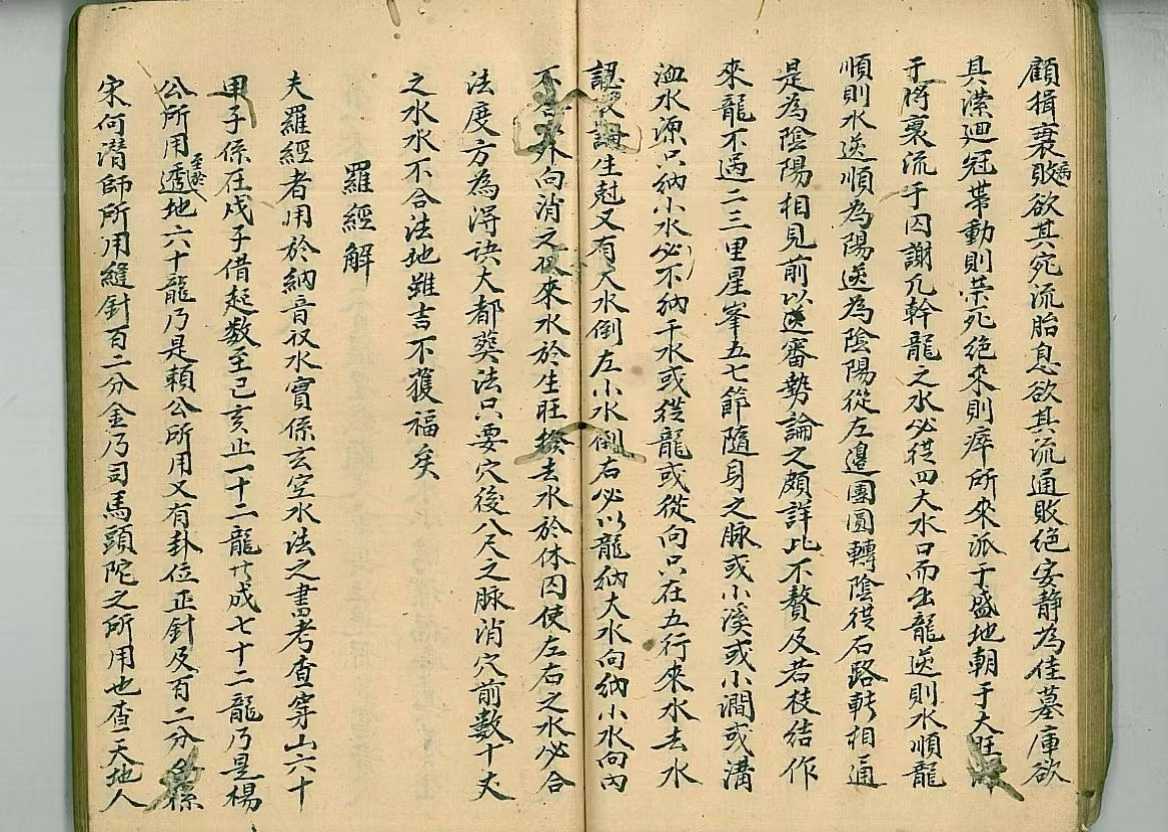 顧揖衰敗病欲其宛流胎息欲其流通敗絕安静為佳墓庫欲
具潆廻冠帯動則荣死絕來則瘁所來派于盛地朝于大旺
于將裹流于囚謝凢幹龍之水必從四大水口而出龍逆則水順龍
順則水逆順為陽逆為陰陽從左邊團圓轉陰從右路転相通
是為陰陽相見前以逆審勢論之頗詳比不贅及若枝結作
來龍不過二三里星峯五七節隨身之脉或小溪或小澗或溝
洫水源只納小水必不納干水或從龍或從向只在五行來水去水
認生尅又有大水倒左小水倒右必以龍納大水向納小水向內
外向消之收來水於生旺撥去水於休囚使左右之水必合
法度方為淂訣大都葬法只要穴後八尺之脉消穴前数十丈
之水水不合法地雖吉不獲福矣
羅經解
夫羅經者用於納音収水實係玄空水法之書考查穿山六十
甲子係在戊子借起数至己亥止一十二龍廿成七十二龍乃是楊
公所用至於透地六十龍乃是頼公所用又有卦位正針及百二分金係
宋何潛師所用縫針百二分金乃司馬頭陀之所用也查天地人